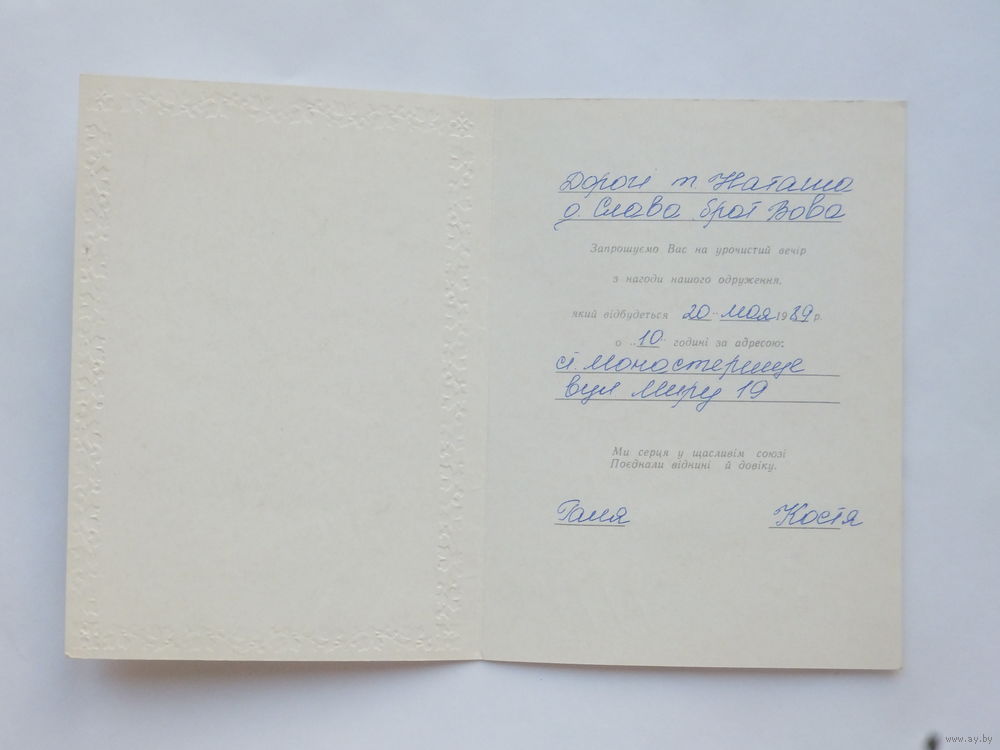 Дорогі т. Наташа
д. Слава, брат Вова
Запрошуємо Вас на урочистий вечір
з нагоди нашого одруження,
який відбудеться 20 " мая 1989 р.
о „10" годині за адресою:
ст. Монастерище
вул Миру 19
Ми серця у щасливім союзі
Поєднали віднині й довіку.
Галя Костя
www.ay.by